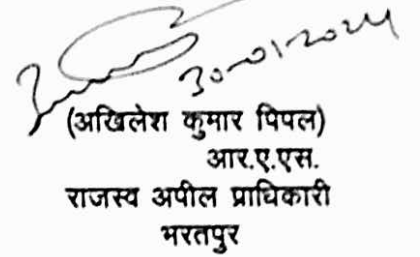 30-01-2024
(अखिलेश कुमार पिपल)
आर.ए.एस.
राजस्व अपील प्राधिकारी
भरतपुर